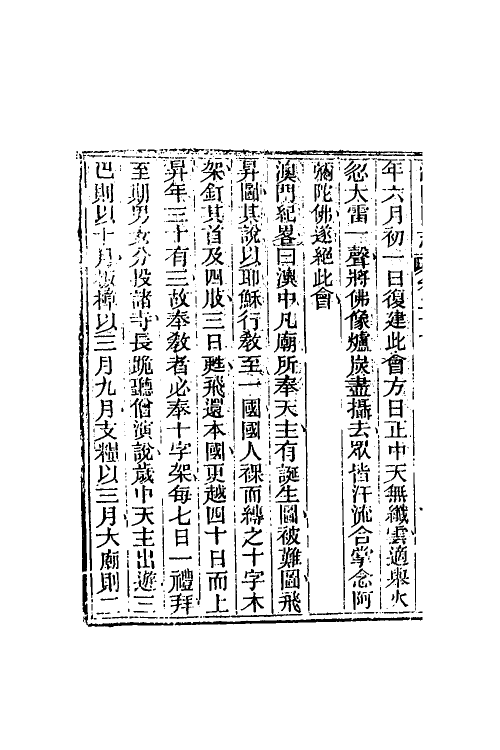 年六月初一日復建此會方日正中天無纖雲適舉火
忽大雷一聲將佛像爐炭盡攝去眾皆汗流合掌念阿
彌陀佛遂絕此會
澳門紀畧曰澳中凡廟所奉天主有誕生圖被難圖飛
昇圖其說以耶穌行教至一國國人裸而縛之十字木
架釘其首及四肢三日甦飛還本國更越四十日而上
昇年三十有三故奉教者必奉十字架每七日一禮拜
至期男女分投諸寺長跪聽僧演說歲中天主出遊三
巴則以十月板樟以三月九月支糧以三月大廟則二